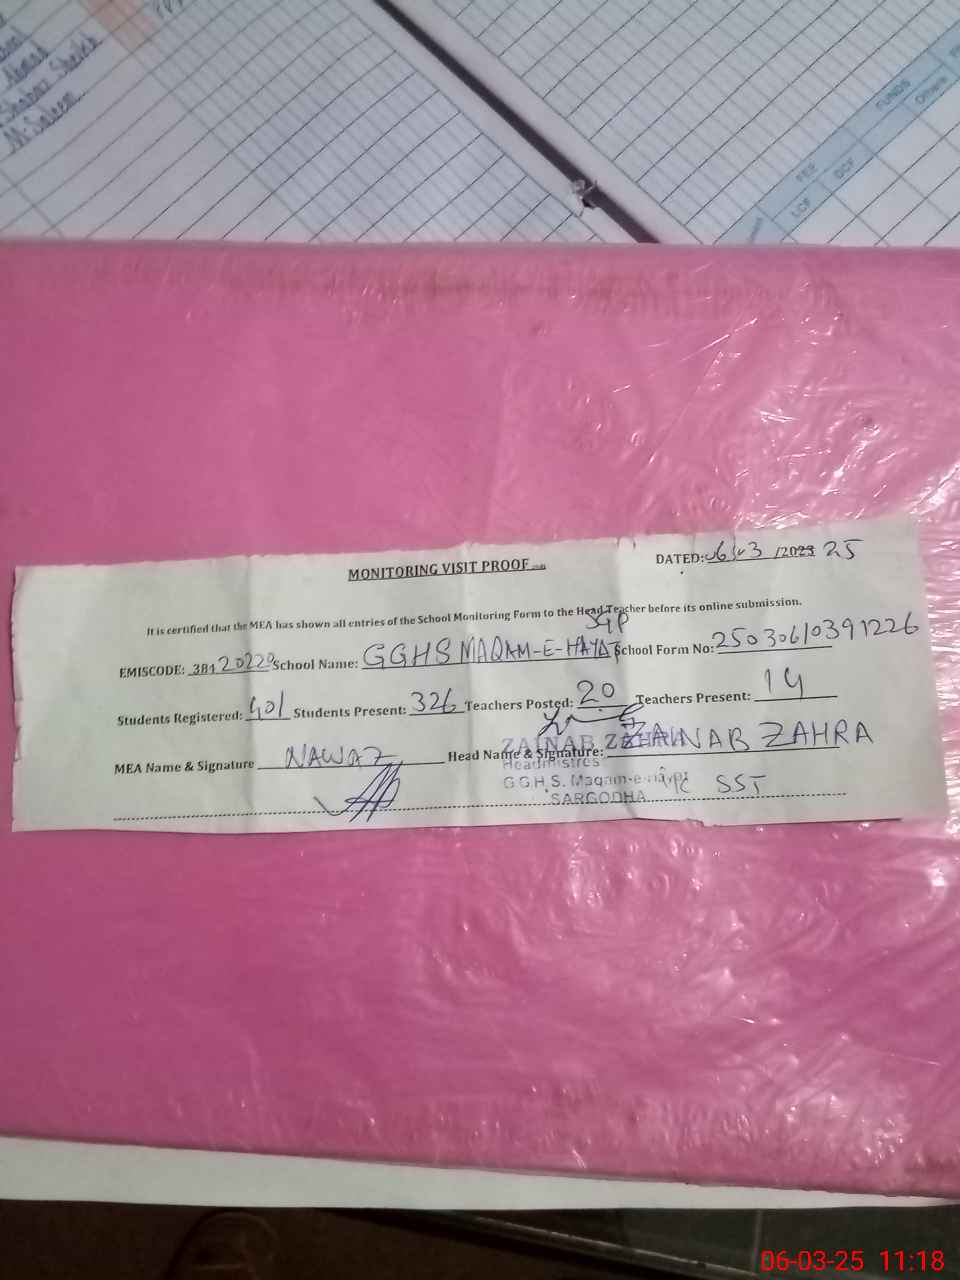 Ahmad
Shahbaz Sheikh
M. Saleem
FUNDS
Others
FEE
LCF
GCF
MONITORING VISIT PROOF
DATED: 06/03 /2023 25
It is certified that the MEA has shown all entries of the School Monitoring Form to the Head Teacher before its online submission.
SGD
EMISCODE: 38120220 School Name: GGHS MAQAM-E-HAYAT School Form No: 25030610391226
Students Registered: 401 Students Present: 326 Teachers Posted: 20 Teachers Present: 14
MEA Name & Signature NAWAZ Head Name & Signature: ZAINAB ZAHRA
ZAINAB ZAHRA
Headmistres
G.G.H.S. Maqam-e-hayat SST
SARGODHA
06-03-25 11:18